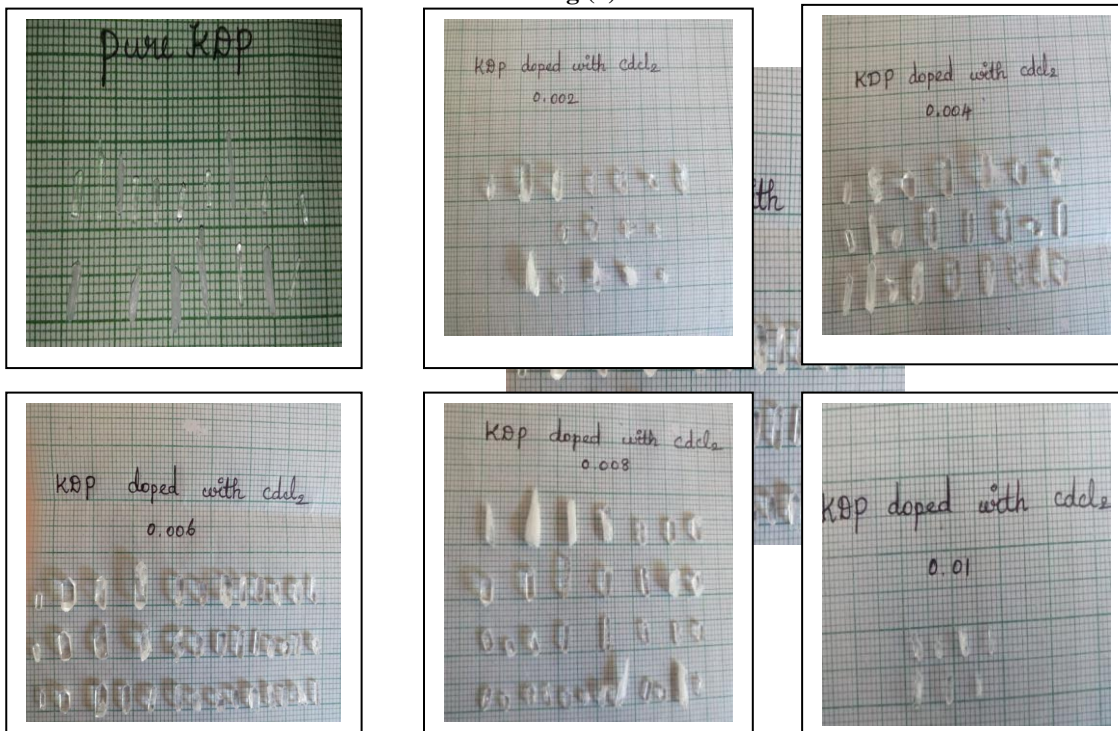 pure KDP
KDP doped with cdcl₂
0.002
KDP doped with cdcl₂
0.004
ith
KDP doped with cdcl₂
0.006
KDP doped with cdcl₂
0.008
KDP doped with cdcl₂
0.01